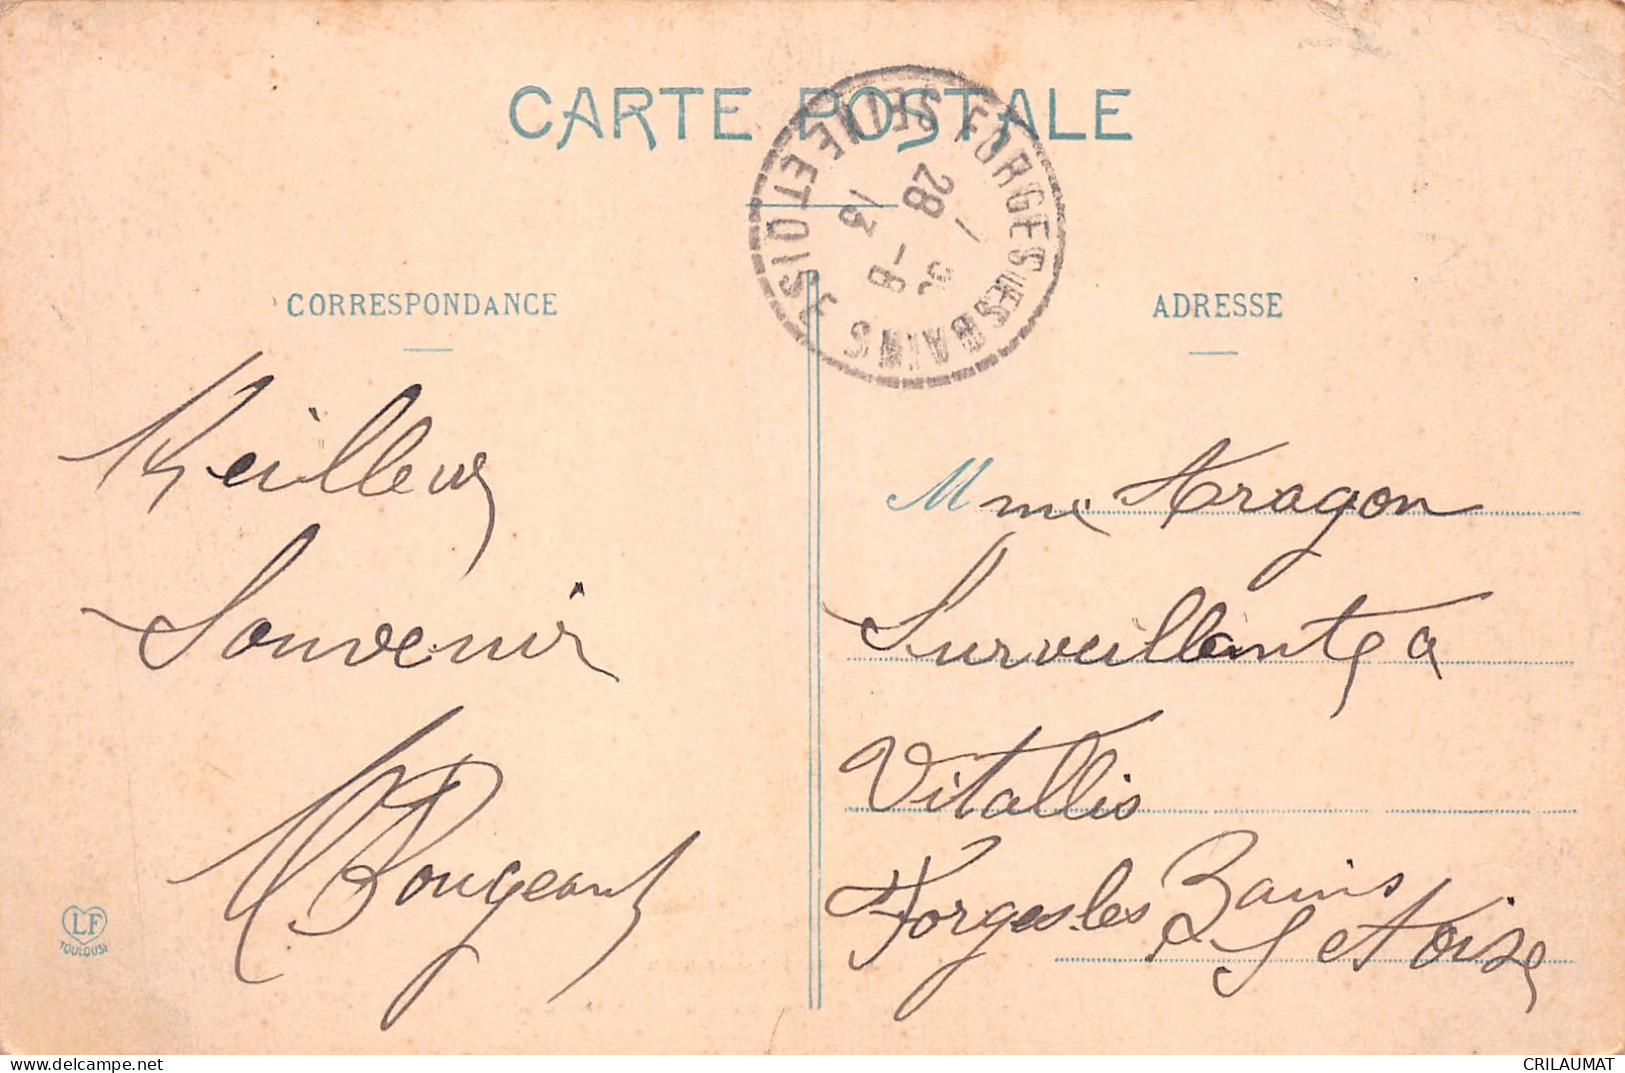 CARTE POSTALE
FORGES LES BAINS SEINE ET OISE
28 - 8
13
CORRESPONDANCE
ADRESSE
Meilleur
Souvenir
Mme Aragon
Surveillante a
Vitallis
Forges les Bains
S et Oise
LF
TOULOUSE
delcampe.net
CRILAUMAT